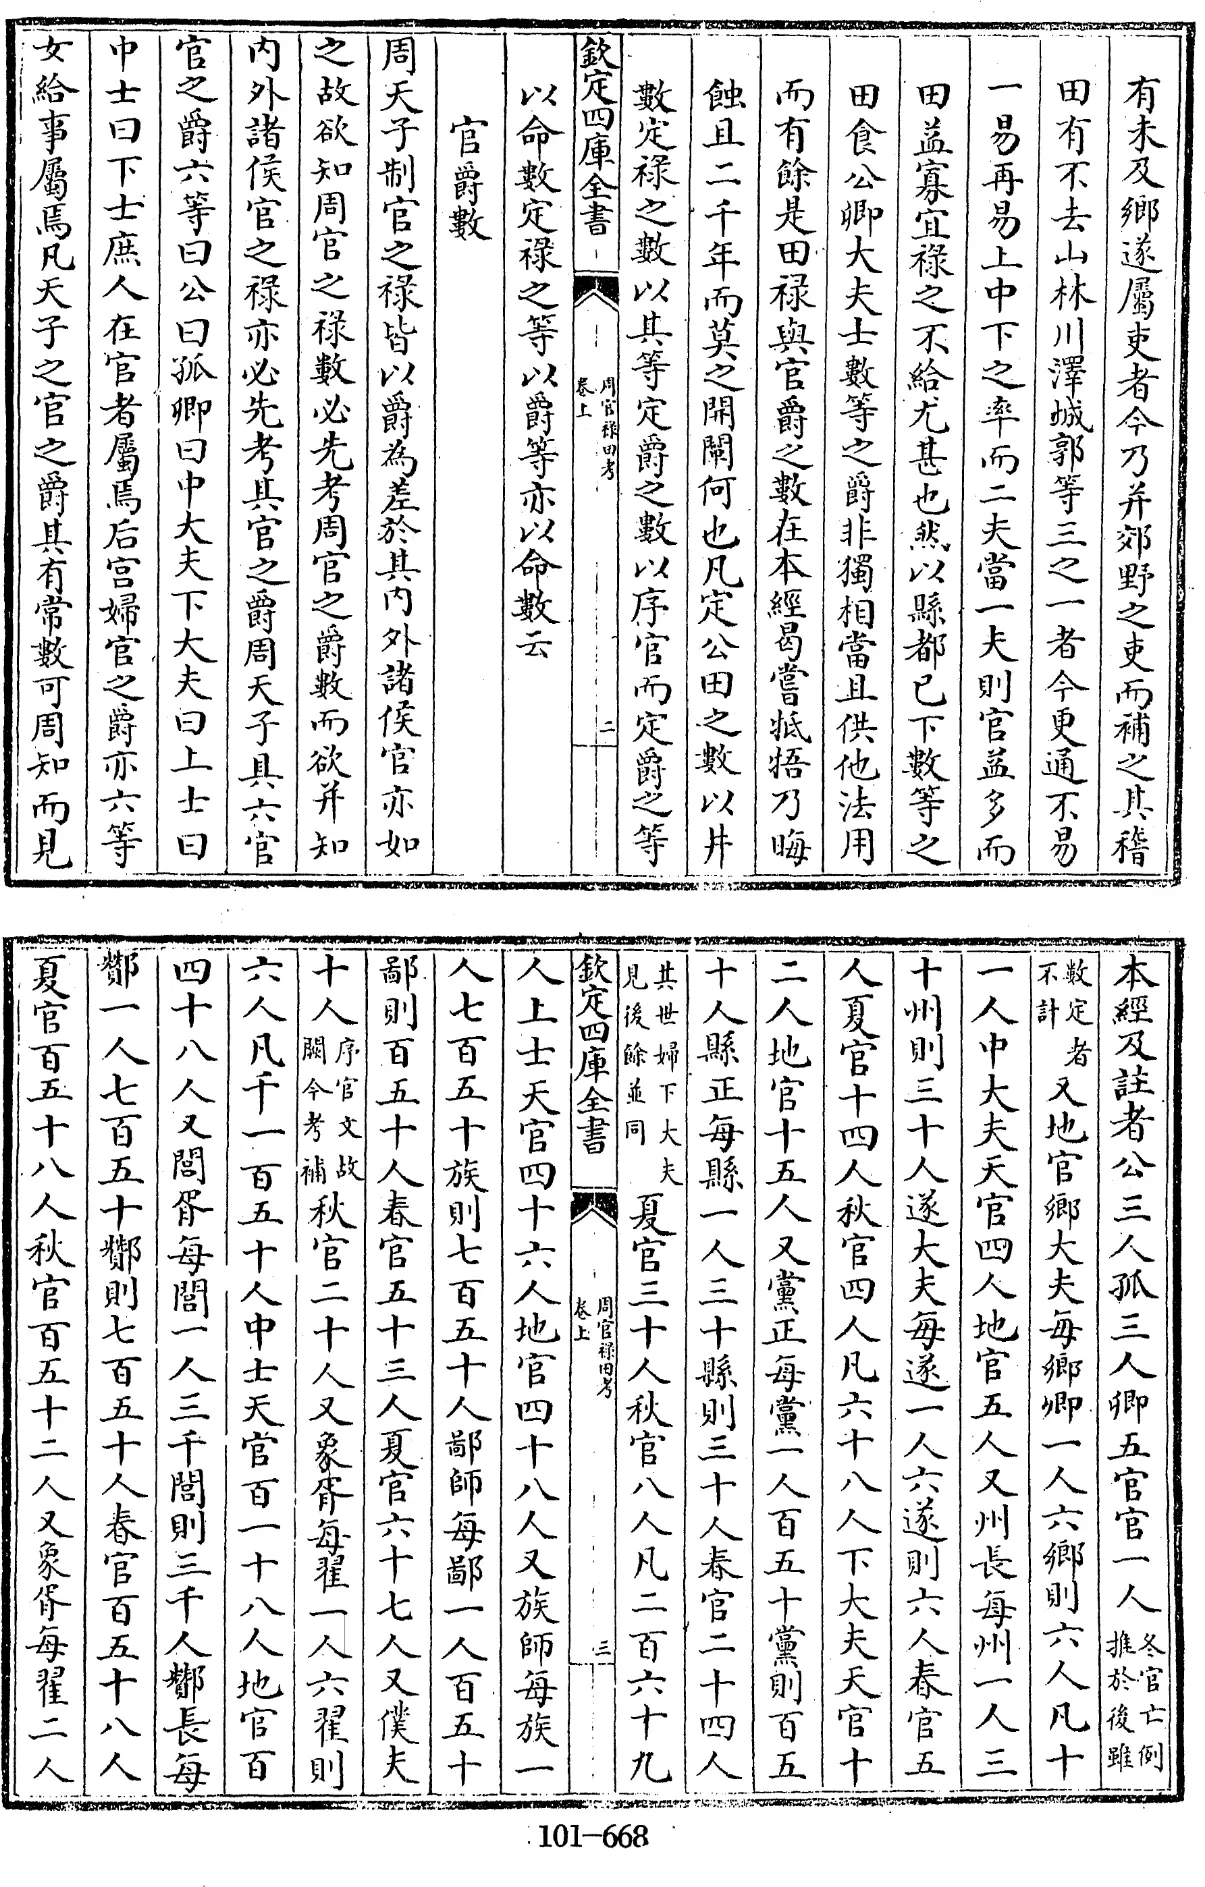 有未及鄉遂屬吏者今乃并郊野之吏而補之其稽
田有不去山林川澤城郭等三之一者今更通不易
一易再易上中下之率而二夫當一夫則官益多而
田益寡宜祿之不給尤甚也然以縣都已下數等之
田食公卿大夫士數等之爵非獨相當且供他法用
而有餘是田祿與官爵之數在本經曷嘗牴牾乃晦
蝕且二千年而莫之開闡何也凡定公田之數以井
數定祿之數以其等定爵之數以序官而定爵之等
欽定四庫全書
周官祿田考
卷上
二
以命數定祿之等以爵等亦以命數云
官爵數
周天子制官之祿皆以爵為差於其内外諸侯官亦如
之故欲知周官之祿數必先考周官之爵數而欲并知
内外諸侯官之祿亦必先考其官之爵周天子具六官
官之爵六等曰公曰孤卿曰中大夫下大夫曰上士曰
中士曰下士庶人在官者屬焉后宫婦官之爵亦六等
女給事屬焉凡天子之官之爵其有常數可周知而見
本經及註者公三人孤三人卿五官官一人冬官亡例
推於後雖
数定者
不計又地官鄉大夫每鄉卿一人六鄉則六人凡十
一人中大夫天官四人地官五人又州長每州一人三
十州則三十人遂大夫每遂一人六遂則六人春官五
人夏官十四人秋官四人凡六十八人下大夫天官十
二人地官十五人又黨正每黨一人百五十黨則百五
十人縣正每縣一人三十縣則三十人春官二十四人
其世婦下大夫
見後餘並同夏官三十人秋官八人凡二百六十九
欽定四庫全書
周官祿田考
卷上
三
人上士天官四十六人地官四十八人又族師每族一
人七百五十族則七百五十人鄙師每鄙一人百五十
鄙則百五十人春官五十三人夏官六十七人又僕夫
十人序官文故
闕今考補秋官二十人又象胥每翟一人六翟則
六人凡千一百五十人中士天官百一十八人地官百
四十八人又閭胥每閭一人三千閭則三千人酇長每
酇一人七百五十酇則七百五十人春官百五十八人
夏官百五十八人秋官百五十二人又象胥每翟二人
101-668